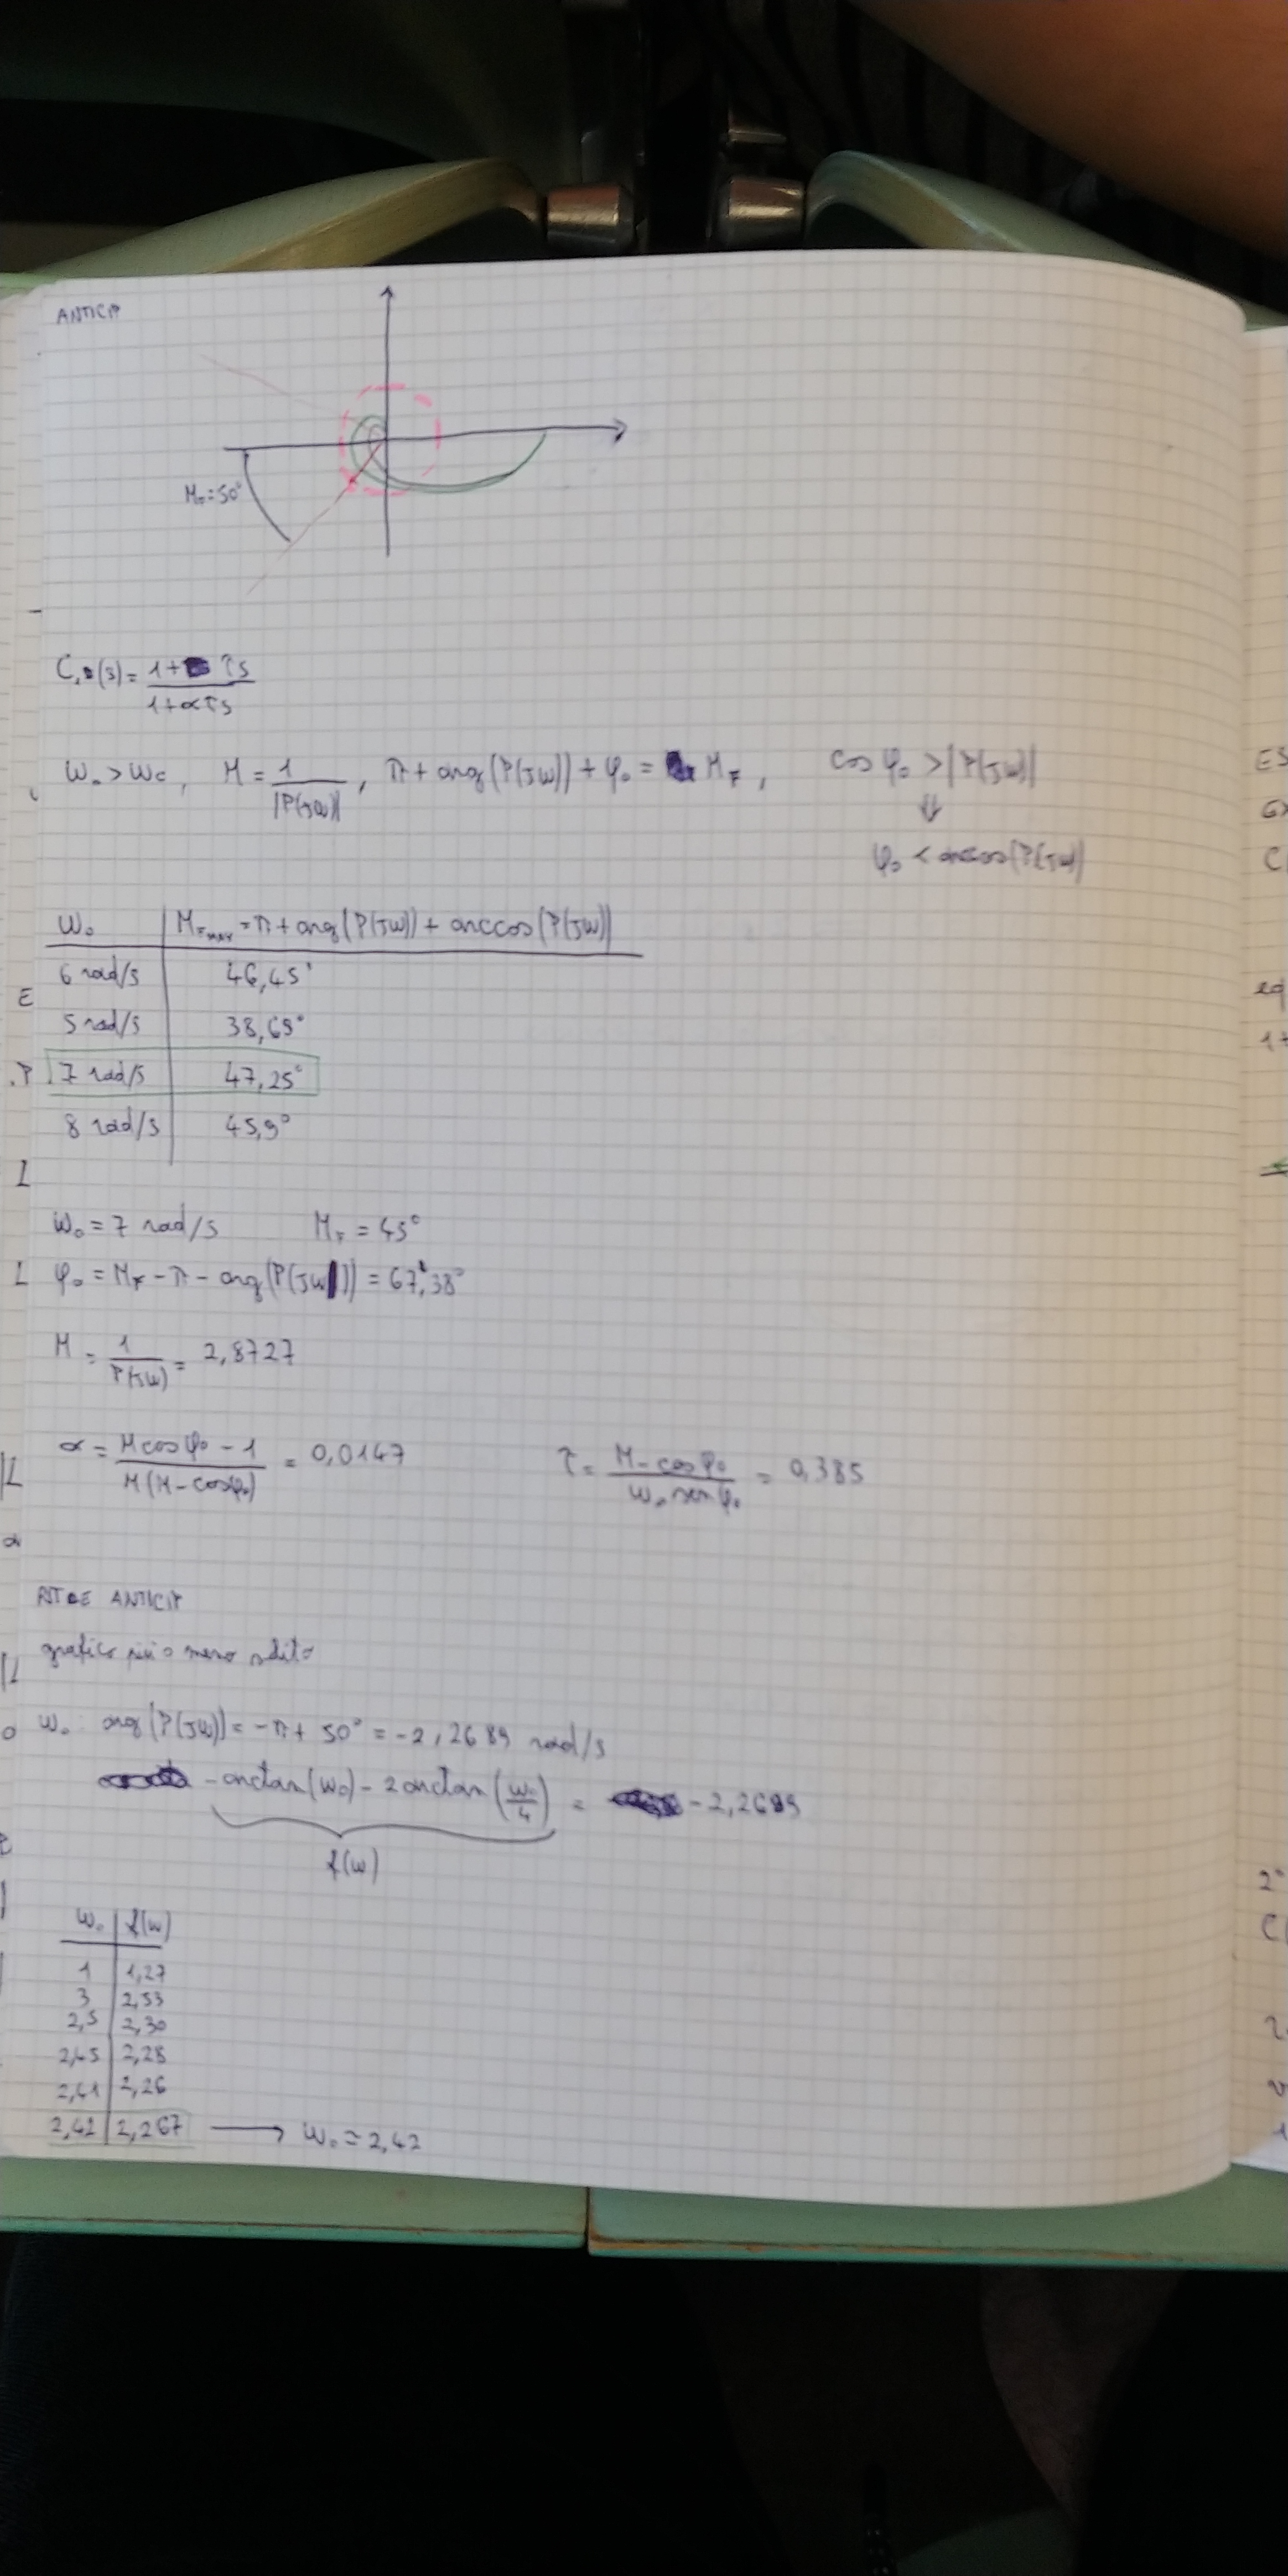 ANTICIP
M_F=50°
C_a(s)= (1+ τs)/(1+ατs)
ω₀>ωc, M = 1/|P(jω)|, π + arg(P(jω)) + φ₀ = M_F, cos φ₀ > |P(jω)|
⇓
φ₀ < arccos|P(jω)|
ω₀ | M_Fmax = π + arg(P(jω)) + arccos|P(jω)|
6 rad/s | 46,45°
5 rad/s | 38,69°
7 rad/s | 47,25°
8 rad/s | 45,9°
ω₀ = 7 rad/s M_F = 45°
φ₀ = M_F - π - arg(P(jω)) = 67,38°
M = 1/P(jω) = 2,8727
α = (M cos φ₀ - 1)/(M(M - cos φ₀)) = 0,0147 τ = (M - cos φ₀)/(ω₀ sen φ₀) = 0,385
RIT E ANTICIP
grafico più o meno solito
ω₀: arg(P(jω)) = -π + 50° = -2,2689 rad/s
-arctan(ω₀) - 2arctan(ω₀/4) = -2,2689
f(ω)
ω₀ | f(ω)
1 | 1,27
3 | 2,53
2,5 | 2,30
2,45 | 2,28
2,41 | 2,26
2,42 | 2,267 → ω₀ = 2,42